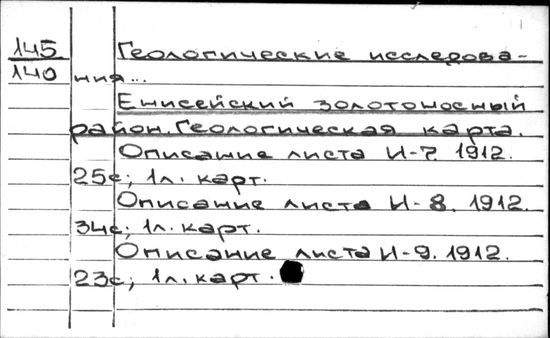 145
140
Геологические исследова-
ния...
Енисейский золотоносный
район. Геологическая карта.
Описание листа И-7. 1912.
25с; 1л. карт.
Описание листа И-8. 1912.
34с; 1л. карт.
Описание листа И-9. 1912.
23с; 1л. карт.